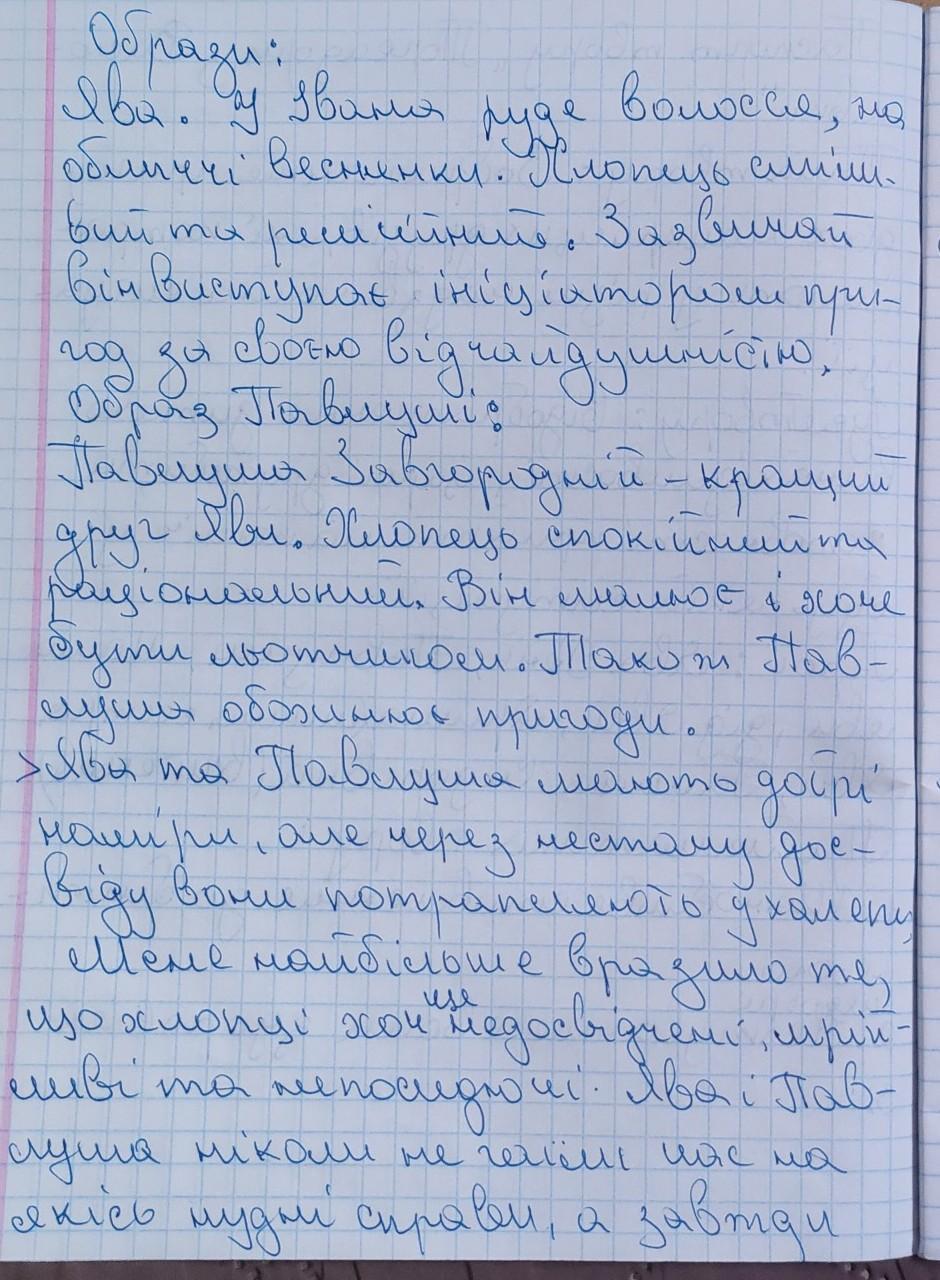 Образи:
Ява. У Івана руде волосся, на
обличчі веснянки. Хлопець сміли-
вий та релігійний. Зазвичай
він виступає ініціатором при-
год за своєю відчайдушністю.
Образ Павлуші:
Павлуша Завгородній - кращий
друг Яви. Хлопець спокійний та
раціональний. Він малює і хоче
бути льотчиком. Також Пав-
луша обожнює пригоди.
>Ява та Павлуша мають добрі
наміри, але через нестачу дос-
віду вони потрапляють у халепу,
Мене найбільше вразило те,
що хлопці хоч ще недосвідчені, мрій-
ливі та непосидючі. Ява і Пав-
луша ніколи не гаяли час на
якісь нудні справи, а завжди